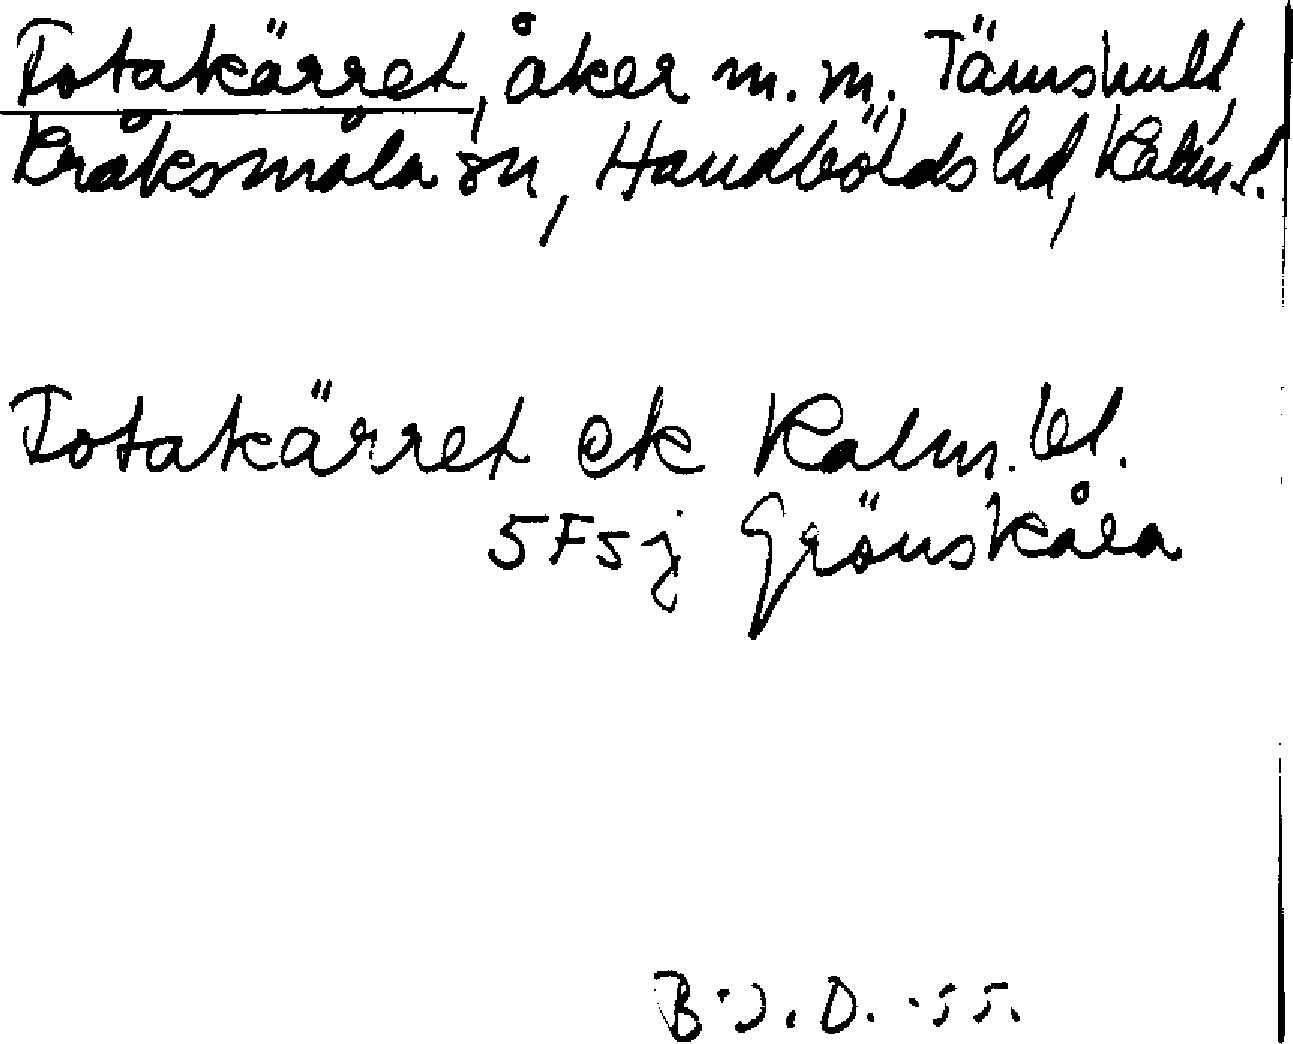 Totakärret, åker m.m. Tämshult,
Kråksmåla sn, Handbölds hd, Kalm. l.
Totakärret ek Kalm. bl.
5F5j Grönskåla
B.J.D. -55.